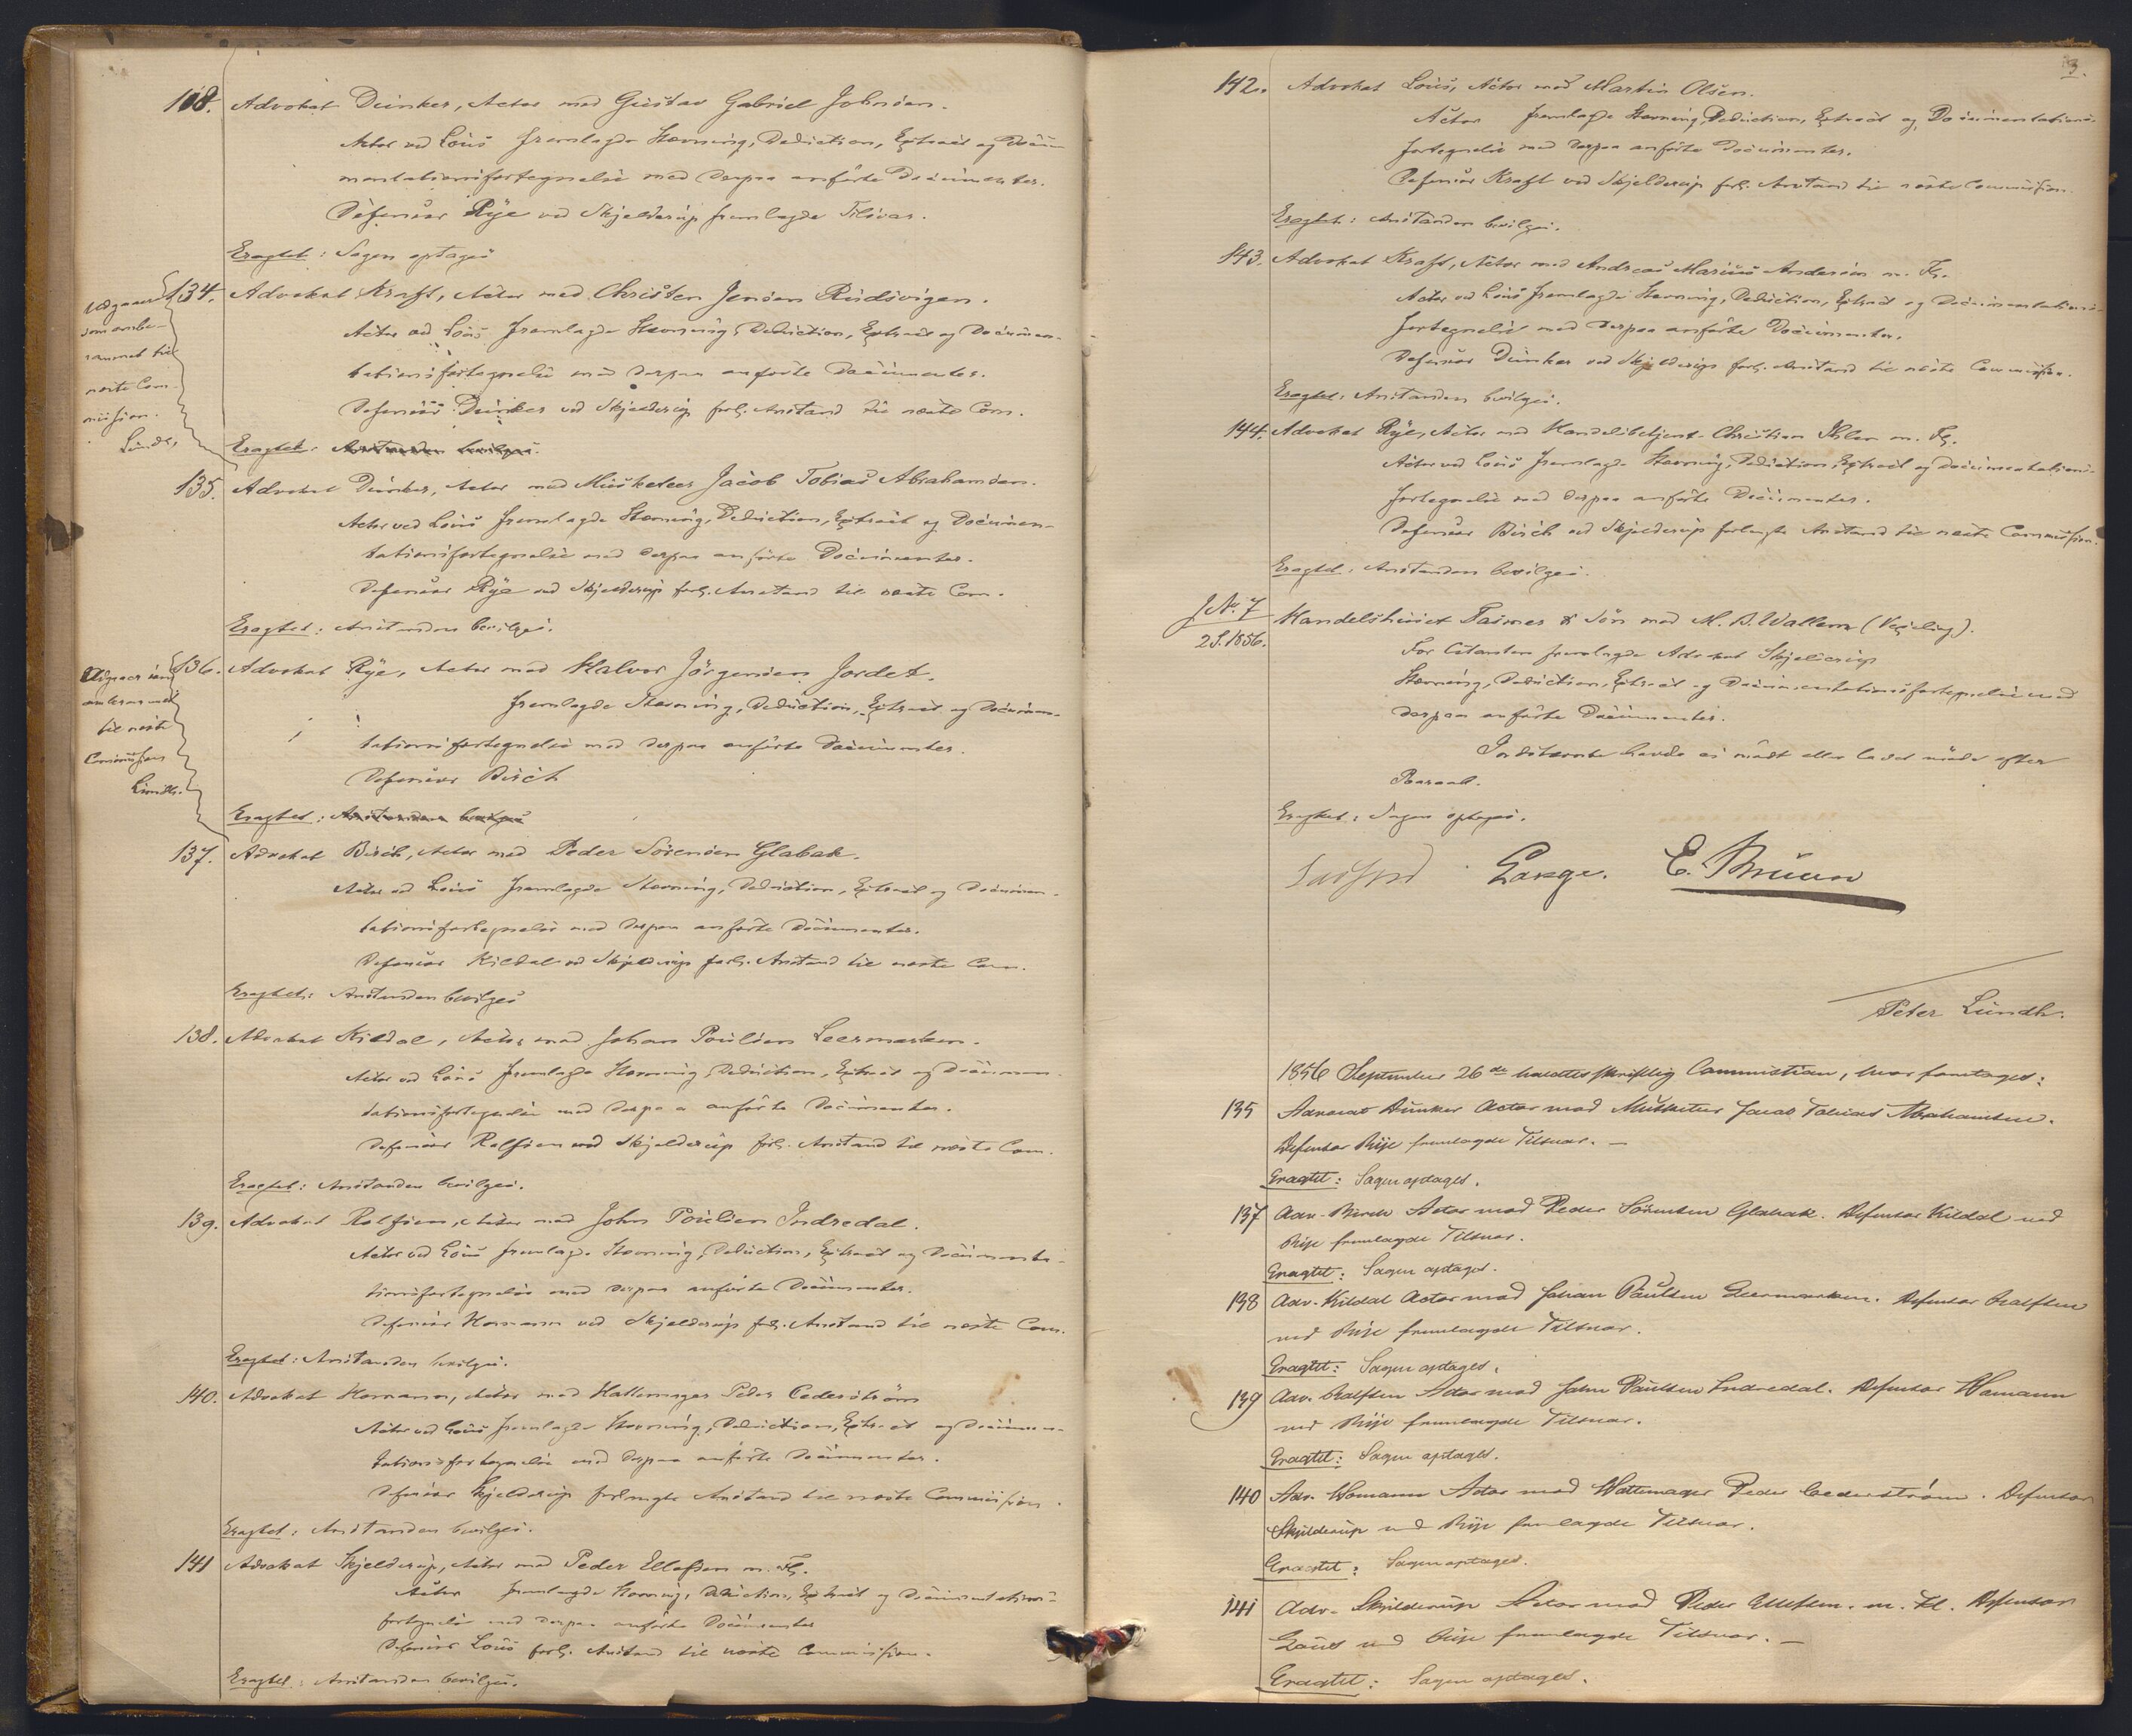 118. Advokat Dunker, Actor mod Gustav Gabriel Johnsen.
Actor ved Lous fremlagde Stevning, Deduction, Extract og Docu-
mentationsfortegnelse med derpaa anförte Documenter.
Defensor Rye ved Skjelderup fremlagde Tilsvar.
Eragtet: Sagen optages
134. Advokat Kraft, Actor mod Christen Jensen Rudsvigen.
Actor ved Lous fremlagde Stevning, Deduction, Extract og Documen-
tationsfortegnelse med derpaa anförte Documenter.
Defensor Dunker ved Skjelderup forl. Anstand til næste Com.
Eragtet: Anstanden bevilges.
Udgaaer
som ombe-
rammet til
næste Com-
mission.
Lundh.
135. Advokat Dunker, Actor mod Musketeer Jacob Tobias Abrahamsen.
Actor ved Lous fremlagde Stevning, Deduction, Extract og Documen-
tationsfortegnelse med derpaa anförte Documenter.
Defensor Rye ved Skjelderup forl. Anstand til næste Com.
Eragtet: Anstanden bevilges.
136. Advokat Rye, Actor mod Halvor Jörgensen Jordet.
fremlagde Stevning, Deduction, Extract og Documen-
tationsfortegnelse med derpaa anförte Documenter.
Defensor Birch
Eragtet: Anstanden bevilges
Udgaaer som
omberammet
til næste
Commission
Lundh.
137. Advokat Birch, Actor mod Peder Sörensen Glabak.
Actor ved Lous fremlagde Stevning, Deduction, Extract og Documen-
tationsfortegnelse med derpaa anförte Documenter.
Defensor Kildal ved Skjelderup forl. Anstand til næste Com.
Eragtet: Anstanden bevilges
138. Advokat Kildal, Actor mod Johan Poulsen Leermarken.
Actor ved Lous fremlagde Stevning, Deduction, Extract og Documen-
tationsfortegnelse med derpaa anförte Documenter.
Defensor Rolfsen ved Skjelderup forl. Anstand til næste Com.
Eragtet: Anstanden bevilges.
139. Advokat Rolfsen, Actor mod John Poulsen Indredal.
Actor ved Lous fremlagde Stevning, Deduction, Extract og Documenta-
tionsfortegnelse med derpaa anförte Documenter.
Defensor Homann ved Skjelderup forl. Anstand til næste Com.
Eragtet: Anstanden bevilges.
140. Advokat Homann, Actor mod Hattemager Peder Cederström
Actor ved Lous fremlagde Stevning, Deduction, Extract og Documen-
tationsfortegnelse med derpaa anförte Documenter.
Defensor Skjelderup forlangte Anstand til næste Commission.
Eragtet: Anstanden bevilges.
141 Advokat Skjelderup, Actor mod Peder Ellefsen m. Fl.
Actor fremlagde Stevning, Deduction, Extract og Documentations-
fortegnelse med derpaa anförte Documenter
Defensor Lous forl. Anstand til næste Commission.
Eragtet: Anstanden bevilges.
3.
142. Advokat Lous, Actor mod Martin Olsen.
Actor fremlagde Stevning, Deduction, Extract og Documentations-
fortegnelse med derpaa anförte Documenter.
Defensor Kraft ved Skjelderup forl. Anstand til næste Commission.
Eragtet: Anstanden bevilges.
143. Advokat Kraft, Actor mod Andreas Marius Andersen m. Fl.
Actor ved Lous fremlagde Stevning, Deduction, Extract og Documentations-
fortegnelse med derpaa anförte Documenter.
Defensor Dunker ved Skjelderup forl. Anstand til næste Commission.
Eragtet: Anstanden bevilges.
144. Advokat Rye, Actor mod Handelsbetjent Christian Ihlen m. Fl.
Actor ved Lous fremlagde Stevning, Deduction, Extract og Documentations-
fortegnelse med derpaa anförte Documenter.
Defensor Birch ved Skjelderup forlangte Anstand til næste Commission.
Eragtet: Anstanden bevilges.
J. No. 7
2 S. 1856.
Handelshuset & Sön mod M. D. Wallem (Vexeling).
For Citanten fremlagde Advokat Skjelderup
Stevning, Deduction, Extract og Documentationsfortegnelse med
derpaa anförte Documenter.
Indstevnte havde ei mödt eller ladet möde efter
Paaraab.
Eragtet: Sagen optages.
Lange. E. Bruun
Peter Lundh.
1856 September 26de holdtes skriftlig Commission, hvor foretoges:
135 Advocat Dunker Actor mod Musketeer Jacob Tobias Abrahamsen.
Defensor Rije fremlagde Tilsvar. —
Eragtet: Sagen optages.
137 Adv. Birch Actor mod Peder Sörensen Glabak. Defensor Kildal ved
Rije fremlagde Tilsvar.
Eragtet: Sagen optages.
138 Adv. Kildal Actor mod Johan Paulsen Leermarken. Defensor Rolfsen
ved Rije fremlagde Tilsvar.
Eragtet: Sagen optages.
139 Adv. Rolfsen Actor mod John Paulsen Indredal. Defensor Homann
ved Rije fremlagde Tilsvar.
Eragtet: Sagen optages.
140 Adv. Homann Actor mod Hattemager Peder Cederström. Defensor
Skjelderup ved Rije fremlagde Tilsvar.
Eragtet: Sagen optages.
141 Adv. Skjelderup Actor mod Peder Ellefsen m. Fl. Defensor
Lous ved Rije fremlagde Tilsvar. —
Eragtet: Sagen optages.